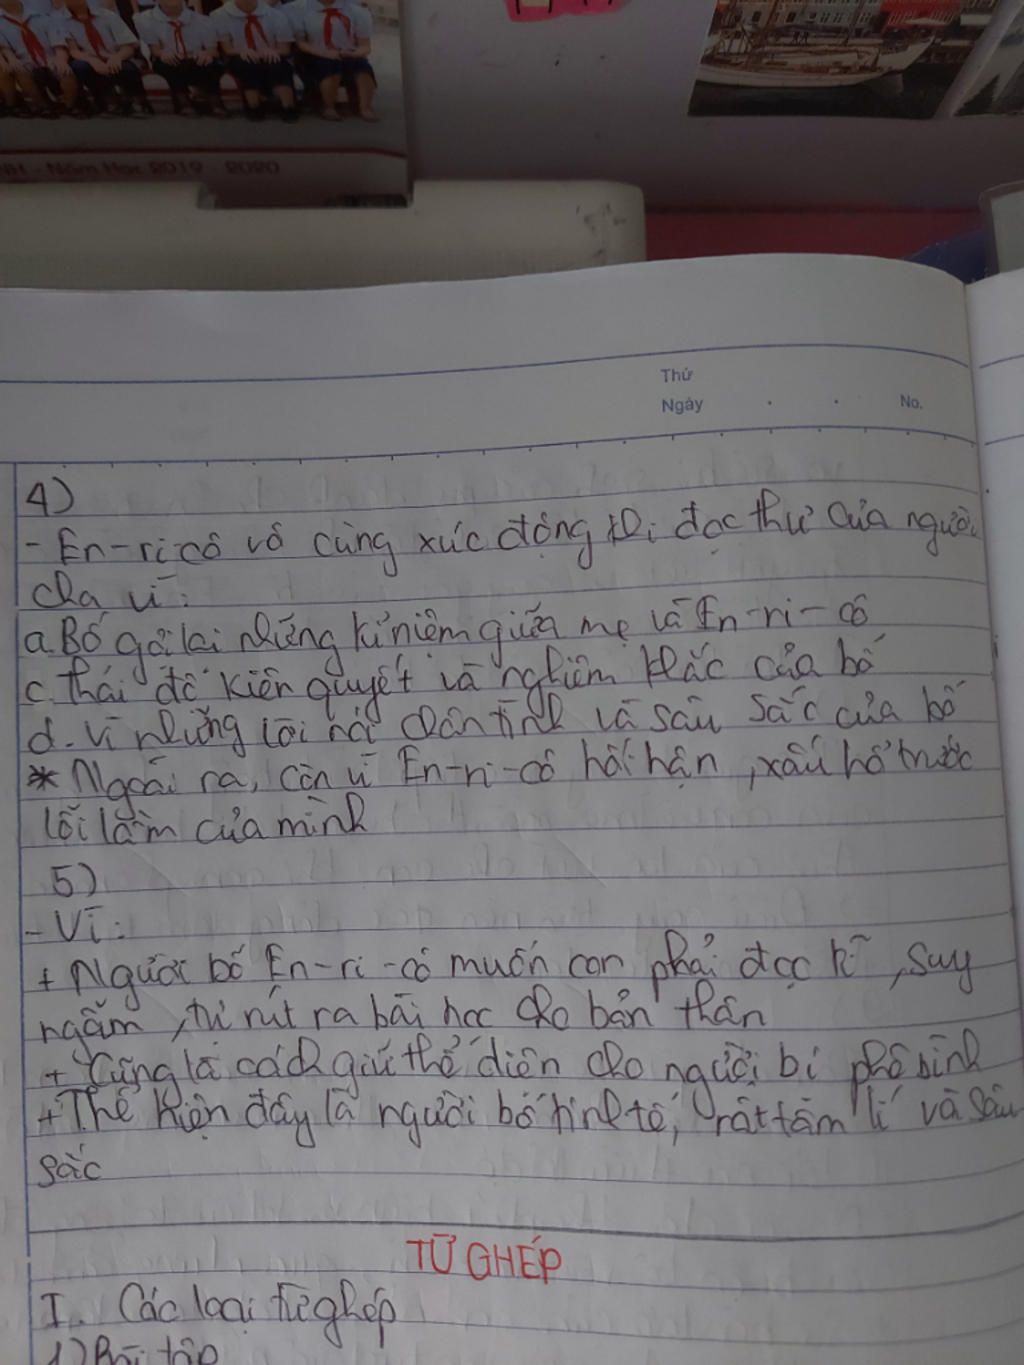 NH - Năm Học 2019 - 2020
Thứ
Ngày . . No.
4)
- En-ri-cô vô cùng xúc động khi đọc thư của người
cha vì:
a. Bố gợi lại những kỉ niệm giữa mẹ và En-ri-cô
c. Thái độ kiên quyết và nghiêm khắc của bố
d. Vì những lời nói chân tình và sâu sắc của bố
* Ngoài ra, còn vì En-ri-cô hối hận, xấu hổ trước
lỗi lầm của mình
5)
- Vì:
+ Người bố En-ri-cô muốn con phải đọc kĩ, suy
ngẫm, tự rút ra bài học cho bản thân
+ Cũng là cách giữ thể diện cho người bị phê bình
+ Thể hiện đây là người bố tinh tế, rất tâm lí và sâu
sắc
TỪ GHÉP
I. Các loại từ ghép
1) Bài tập